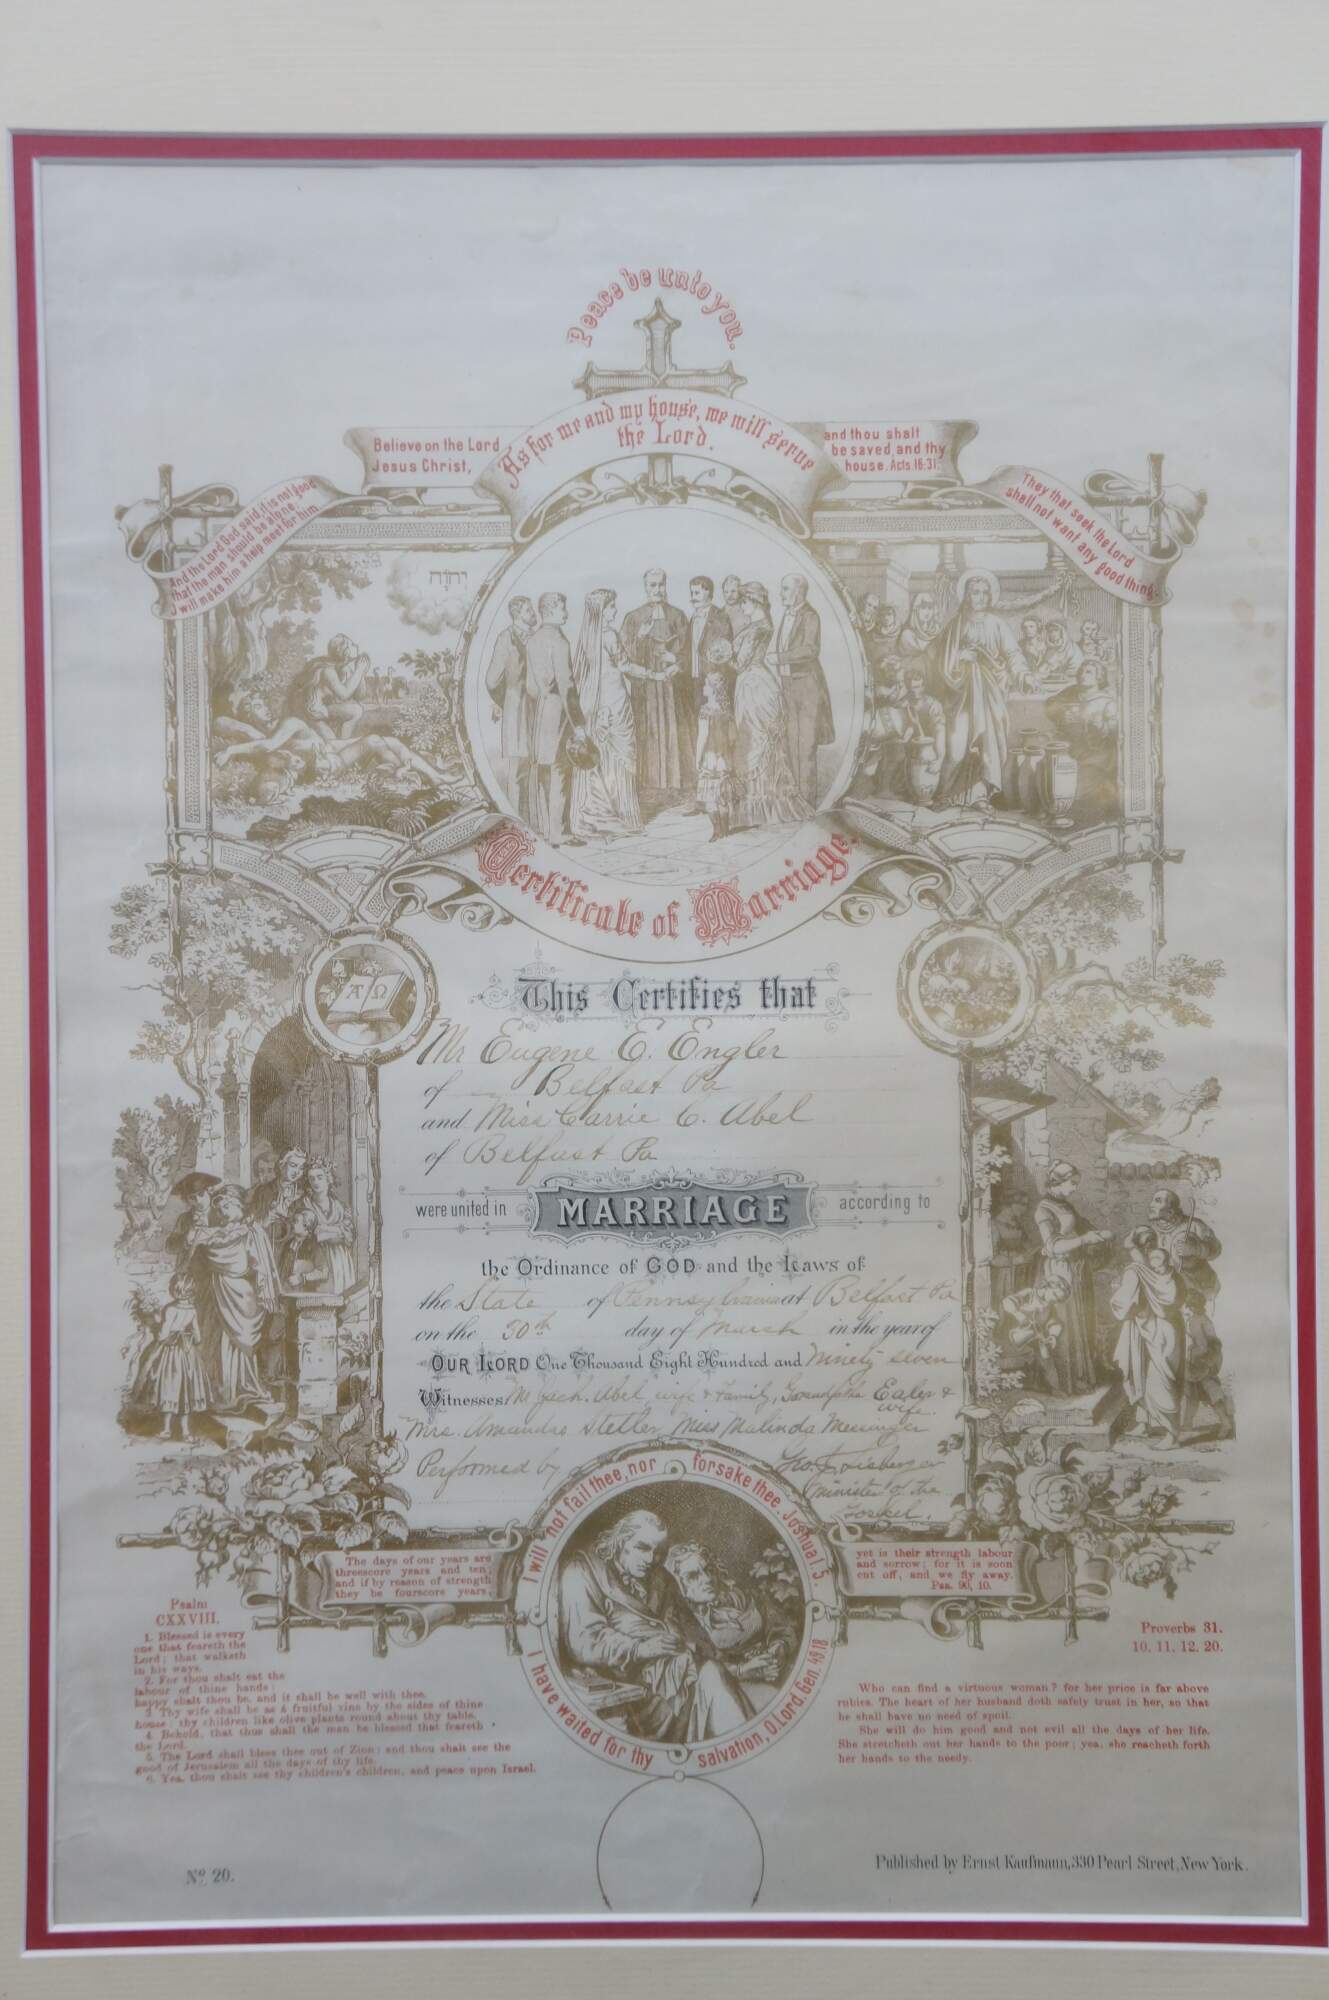 Peace be unto you.
As for me and my house, we will serve
the Lord.
Believe on the Lord
Jesus Christ,
and thou shalt
be saved, and thy
house. Acts. 16-31.
And the Lord God said, it is not good
that the man should be alone;
J will make him a help meet for him.
They that seek the Lord
shall not want any good thing.
יהוה
Certificate of Marriage.
A Ω
This Certifies that
Mr Eugene E. Engler
of Belfast Pa
and Miss Carrie C. Abel
of Belfast Pa
were united in MARRIAGE according to
the Ordinance of GOD and the Laws of
the State of Pennsylvania at Belfast Pa
on the 30th day of March in the year of
OUR LORD One Thousand Eight Hundred and Ninety seven
Witnesses: Mr Jach. Abel, wife & Family, Grandfather Ealer &
wife.
Mrs. Amandus Stetler Miss Malinda Messinger
Performed by Geo.
Minister of the
Gospel.
I will not fail thee, nor forsake thee. Joshua 1, 5.
I have waited for thy salvation, O, Lord. Gen. 49, 18
The days of our years are
threescore years and ten;
and if by reason of strength
they be fourscore years,
yet is their strength labour
and sorrow; for it is soon
cut off, and we fly away.
Psa. 90, 10.
Psalm
CXXVIII.
1. Blessed is every
one that feareth the
Lord; that walketh
in his ways.
2. For thou shalt eat the
labour of thine hands;
happy shalt thou be, and it shall be well with thee.
3. Thy wife shall be as a fruitful vine by the sides of thine
house: thy children like olive plants round about thy table.
4. Behold, that thus shall the man be blessed that feareth
the Lord.
5. The Lord shall bless thee out of Zion: and thou shalt see the
good of Jerusalem all the days of thy life.
6. Yea, thou shalt see thy children's children, and peace upon Israel.
Proverbs 31.
10. 11. 12. 20.
Who can find a virtuous woman? for her price is far above
rubies. The heart of her husband doth safely trust in her, so that
he shall have no need of spoil.
She will do him good and not evil all the days of her life.
She stretcheth out her hands to the poor; yea, she reacheth forth
her hands to the needy.
No. 20.
Published by Ernst Kaufmann, 330 Pearl Street, New York.